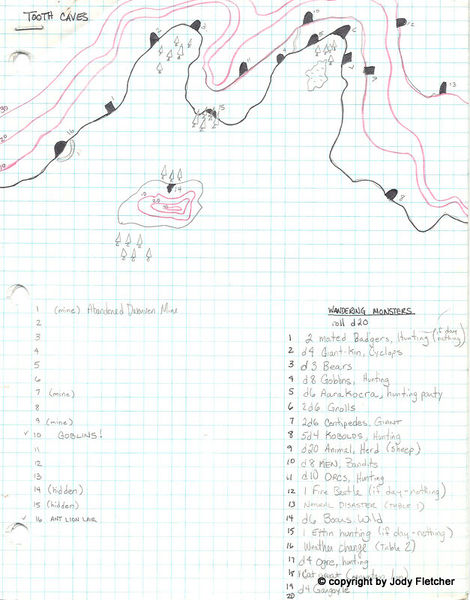 TOOTH CAVES
30
20
10
15
14
13
8
1 (mine) Abandoned Dwarven Mine
2
3
4
5
6
7 (mine)
8
9 (mine)
✓ 10 GOBLINS!
11
12
13
14 (hidden)
15 (hidden)
✓ 16 ANT LION LAIR
WANDERING MONSTERS
roll d20
1 2 mated Badgers, Hunting (if day - nothing)
2 d4 Giant-Kin, Cyclops
3 d3 Bears
4 d8 Goblins, Hunting
5 d6 Aarakocra, hunting party
6 2d6 Gnolls
7 2d6 Centipedes, GIANT
8 5d4 KOBOLDS, Hunting
9 d20 Animal, Herd (sheep)
10 d8 MEN, Bandits
11 d10 ORCS, Hunting
12 1 Fire Beetle (if day - nothing)
13 NATURAL DISASTER (TABLE 1)
14 d6 Boars, Wild
15 1 Ettin hunting (if day - nothing)
16 Weather change (Table 2)
17 d4 Ogre, hunting
18 1 Cat, giant
19 d4 Gargoyle
20
© copyright by Jody Fletcher